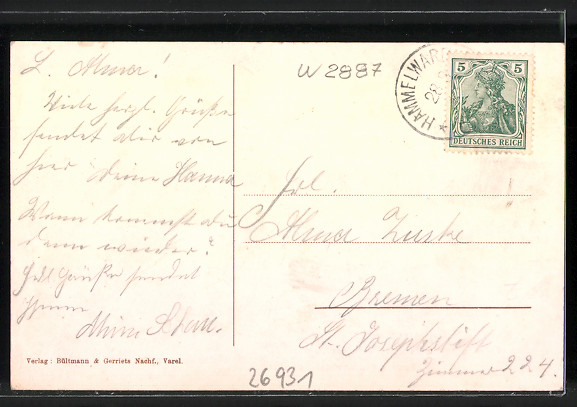 L. Alma!
Viele herzl. Grüße
sendet dir von
hier Deine Hanna
Wann kommst du
denn wieder?
Grüße sendet
Verlag : Bültmann & Gerriets Nachf., Varel.
W 2887
HAMMELWAR
28
5 5
DEUTSCHES REICH
Frl.
Alma
Bremen
St. Josephstift
Zimmer 224.
26931